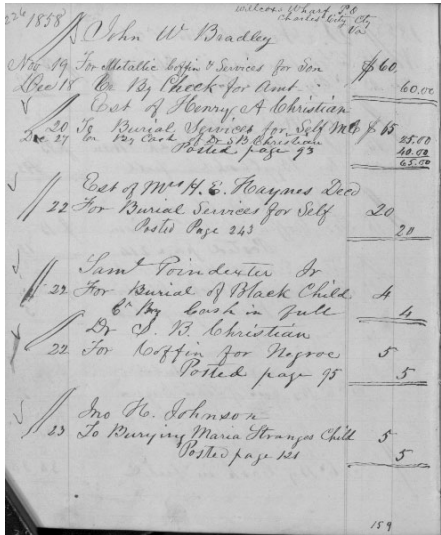 226 1858
Wilcoxs Wharf P.O
Charles City Cty
Va
John W Bradley
Nov 19 For Metallic Coffin & Services for Son $60.
Dec 18 Cr By Check for Amt 60.00
Est of Henry A Christian
20 To Burial Services for Self $65 25.00
Dec 27 Cr By Cash of Dr S B Christian 40.00
Posted page 93 65.00
Est of Mrs H. E. Haynes Decd
22 For Burial Services for Self 20
Posted Page 243 20
Saml Poindexter Jr
22 For Burial of Black Child 4
Cr By Cash in full 4
Dr S. B. Christian
22 For Coffin for Negroe 5
Posted page 95 5
Jno H. Johnson
23 To Burying Maria Stranges Child 5
Posted page 121 5
159